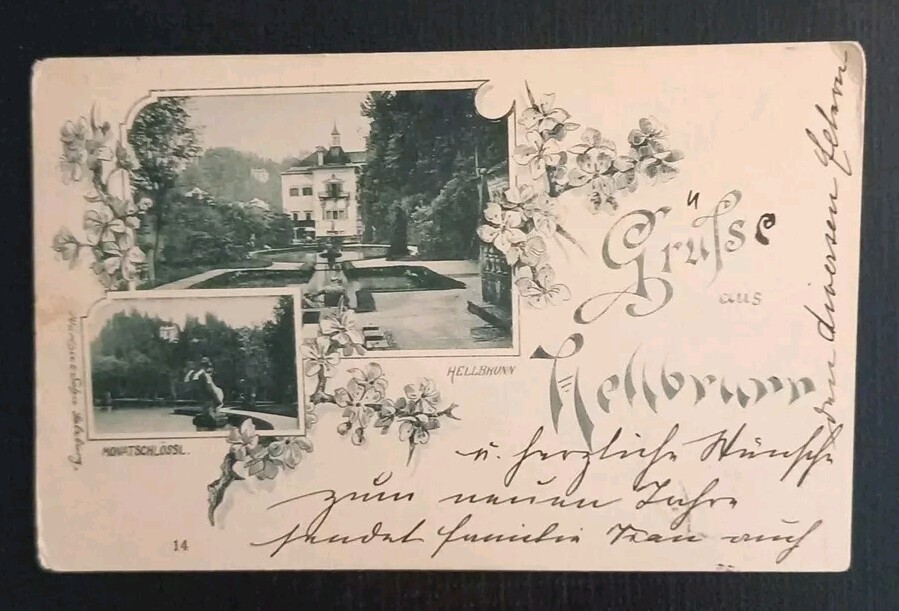 Grüsse
aus
Hellbrunn
HELLBRUNN
MONATSCHLÖSSL.
u. herzliche Wünsche
zum neuen Jahre
sendet Familie auch
den diversen
14